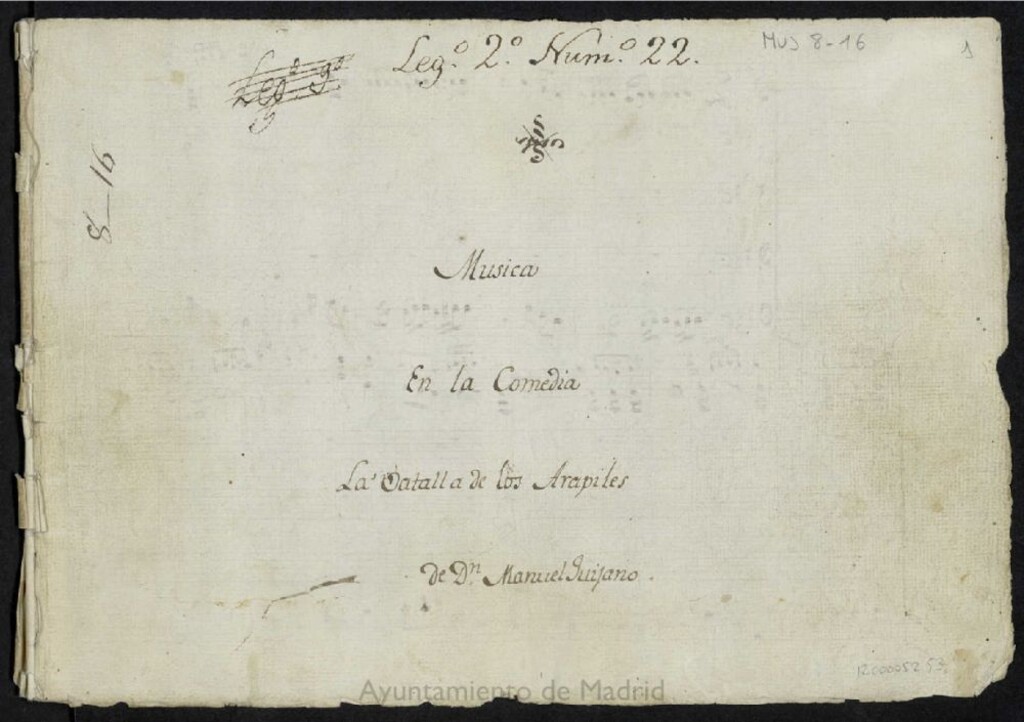 Leg.º 2.º Num.º 22.
MUS 8-16
1
Leg.º 9º
8-16
Musica
En la Comedia
La Batalla de los Arapiles
de Dn. Manuel Quijano.
Ayuntamiento de Madrid